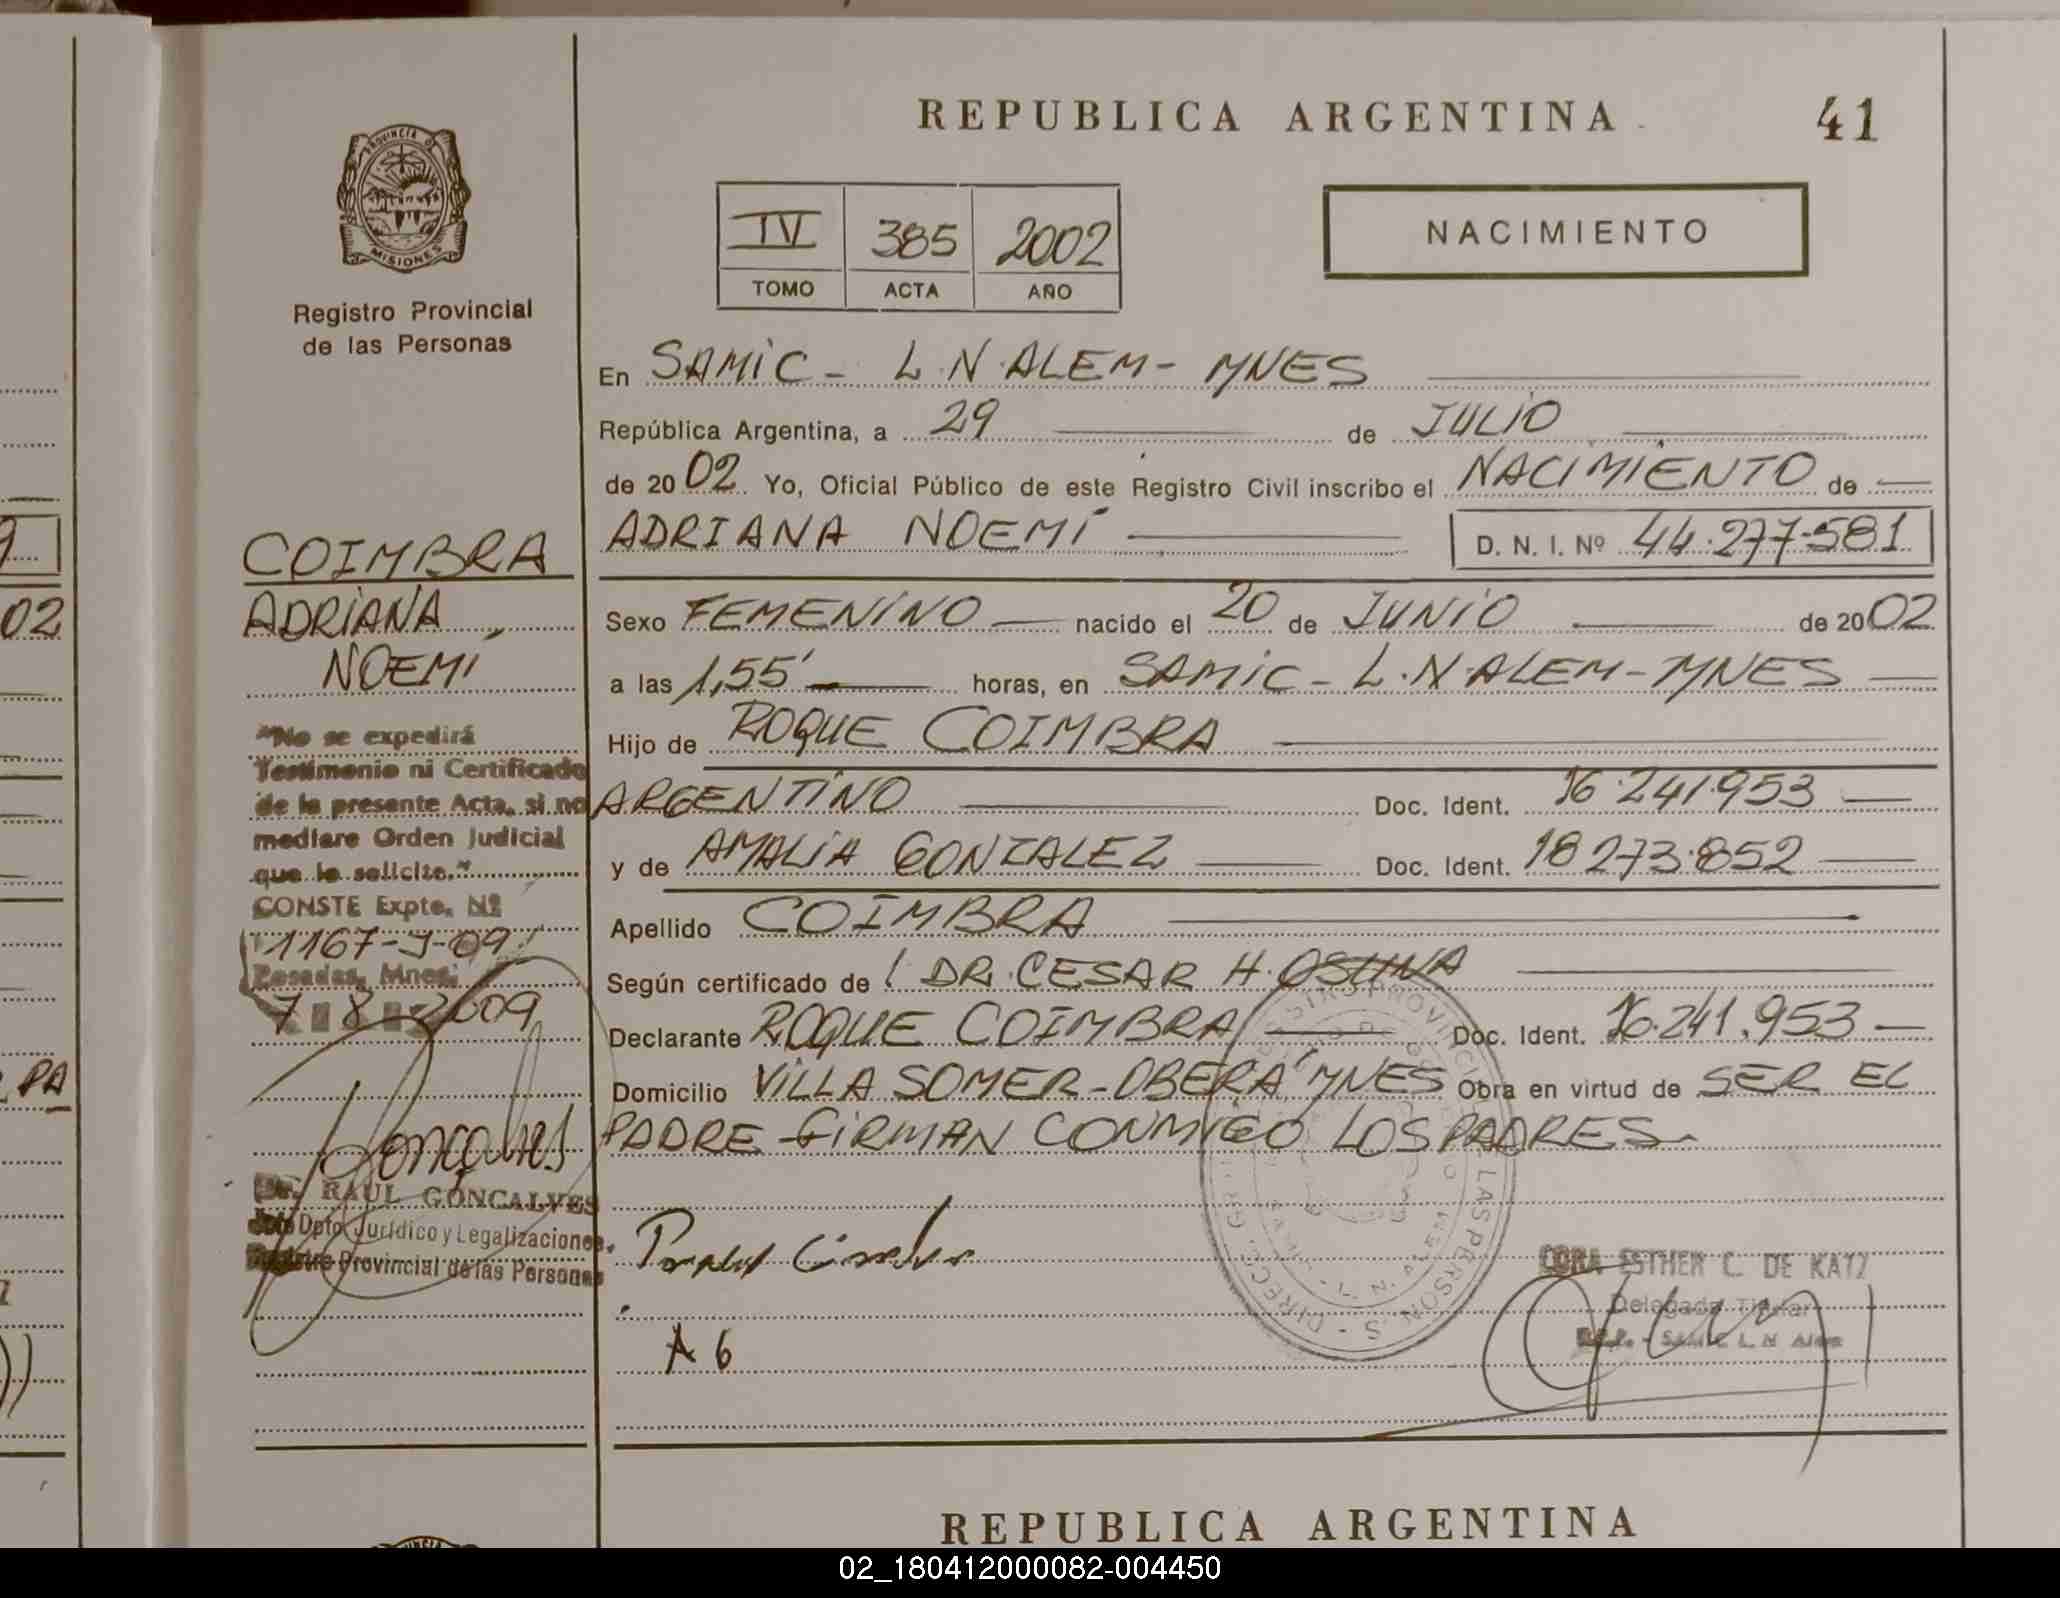 REPUBLICA ARGENTINA
41
PROVINCIA DE
MISIONES
Registro Provincial
de las Personas
IV 385 2002
TOMO ACTA AÑO
NACIMIENTO
En SAMIC - L.N.ALEM - MNES
República Argentina, a 29 de JULIO
de 2002 Yo, Oficial Público de este Registro Civil inscribo el NACIMIENTO de
ADRIANA NOEMÍ D. N. I. Nº 44.277.581
Sexo FEMENINO nacido el 20 de JUNIO de 2002
a las 1,55' horas, en SAMIC - L.N.ALEM - MNES
Hijo de ROQUE COIMBRA
ARGENTINO Doc. Ident. 16.241.953
y de AMALIA GONZALEZ Doc. Ident. 18.273.852
Apellido COIMBRA
Según certificado de DR. CESAR H. OSUNA
Declarante ROQUE COIMBRA Doc. Ident. 16.241.953
Domicilio VILLA SOMER - OBERÁ MNES Obra en virtud de SER EL
PADRE - FIRMAN CONMIGO LOS PADRES
A 6
CORA ESTHER C. DE KATZ
Delegada Titular
SAMIC L. N. Alem
COIMBRA
ADRIANA
NOEMÍ
"No se expedirá
Testimonio ni Certificado
de la presente Acta, si no
mediare Orden Judicial
que lo solicite."
CONSTE Expte. Nº
1167-J-09
Posadas, Mnes.
7 8 2009
Dr. RAUL GONÇALVES
Jefe Dpto. Jurídico y Legalizaciones
Registro Provincial de las Personas
02
PA
REPUBLICA ARGENTINA
02_180412000082-004450